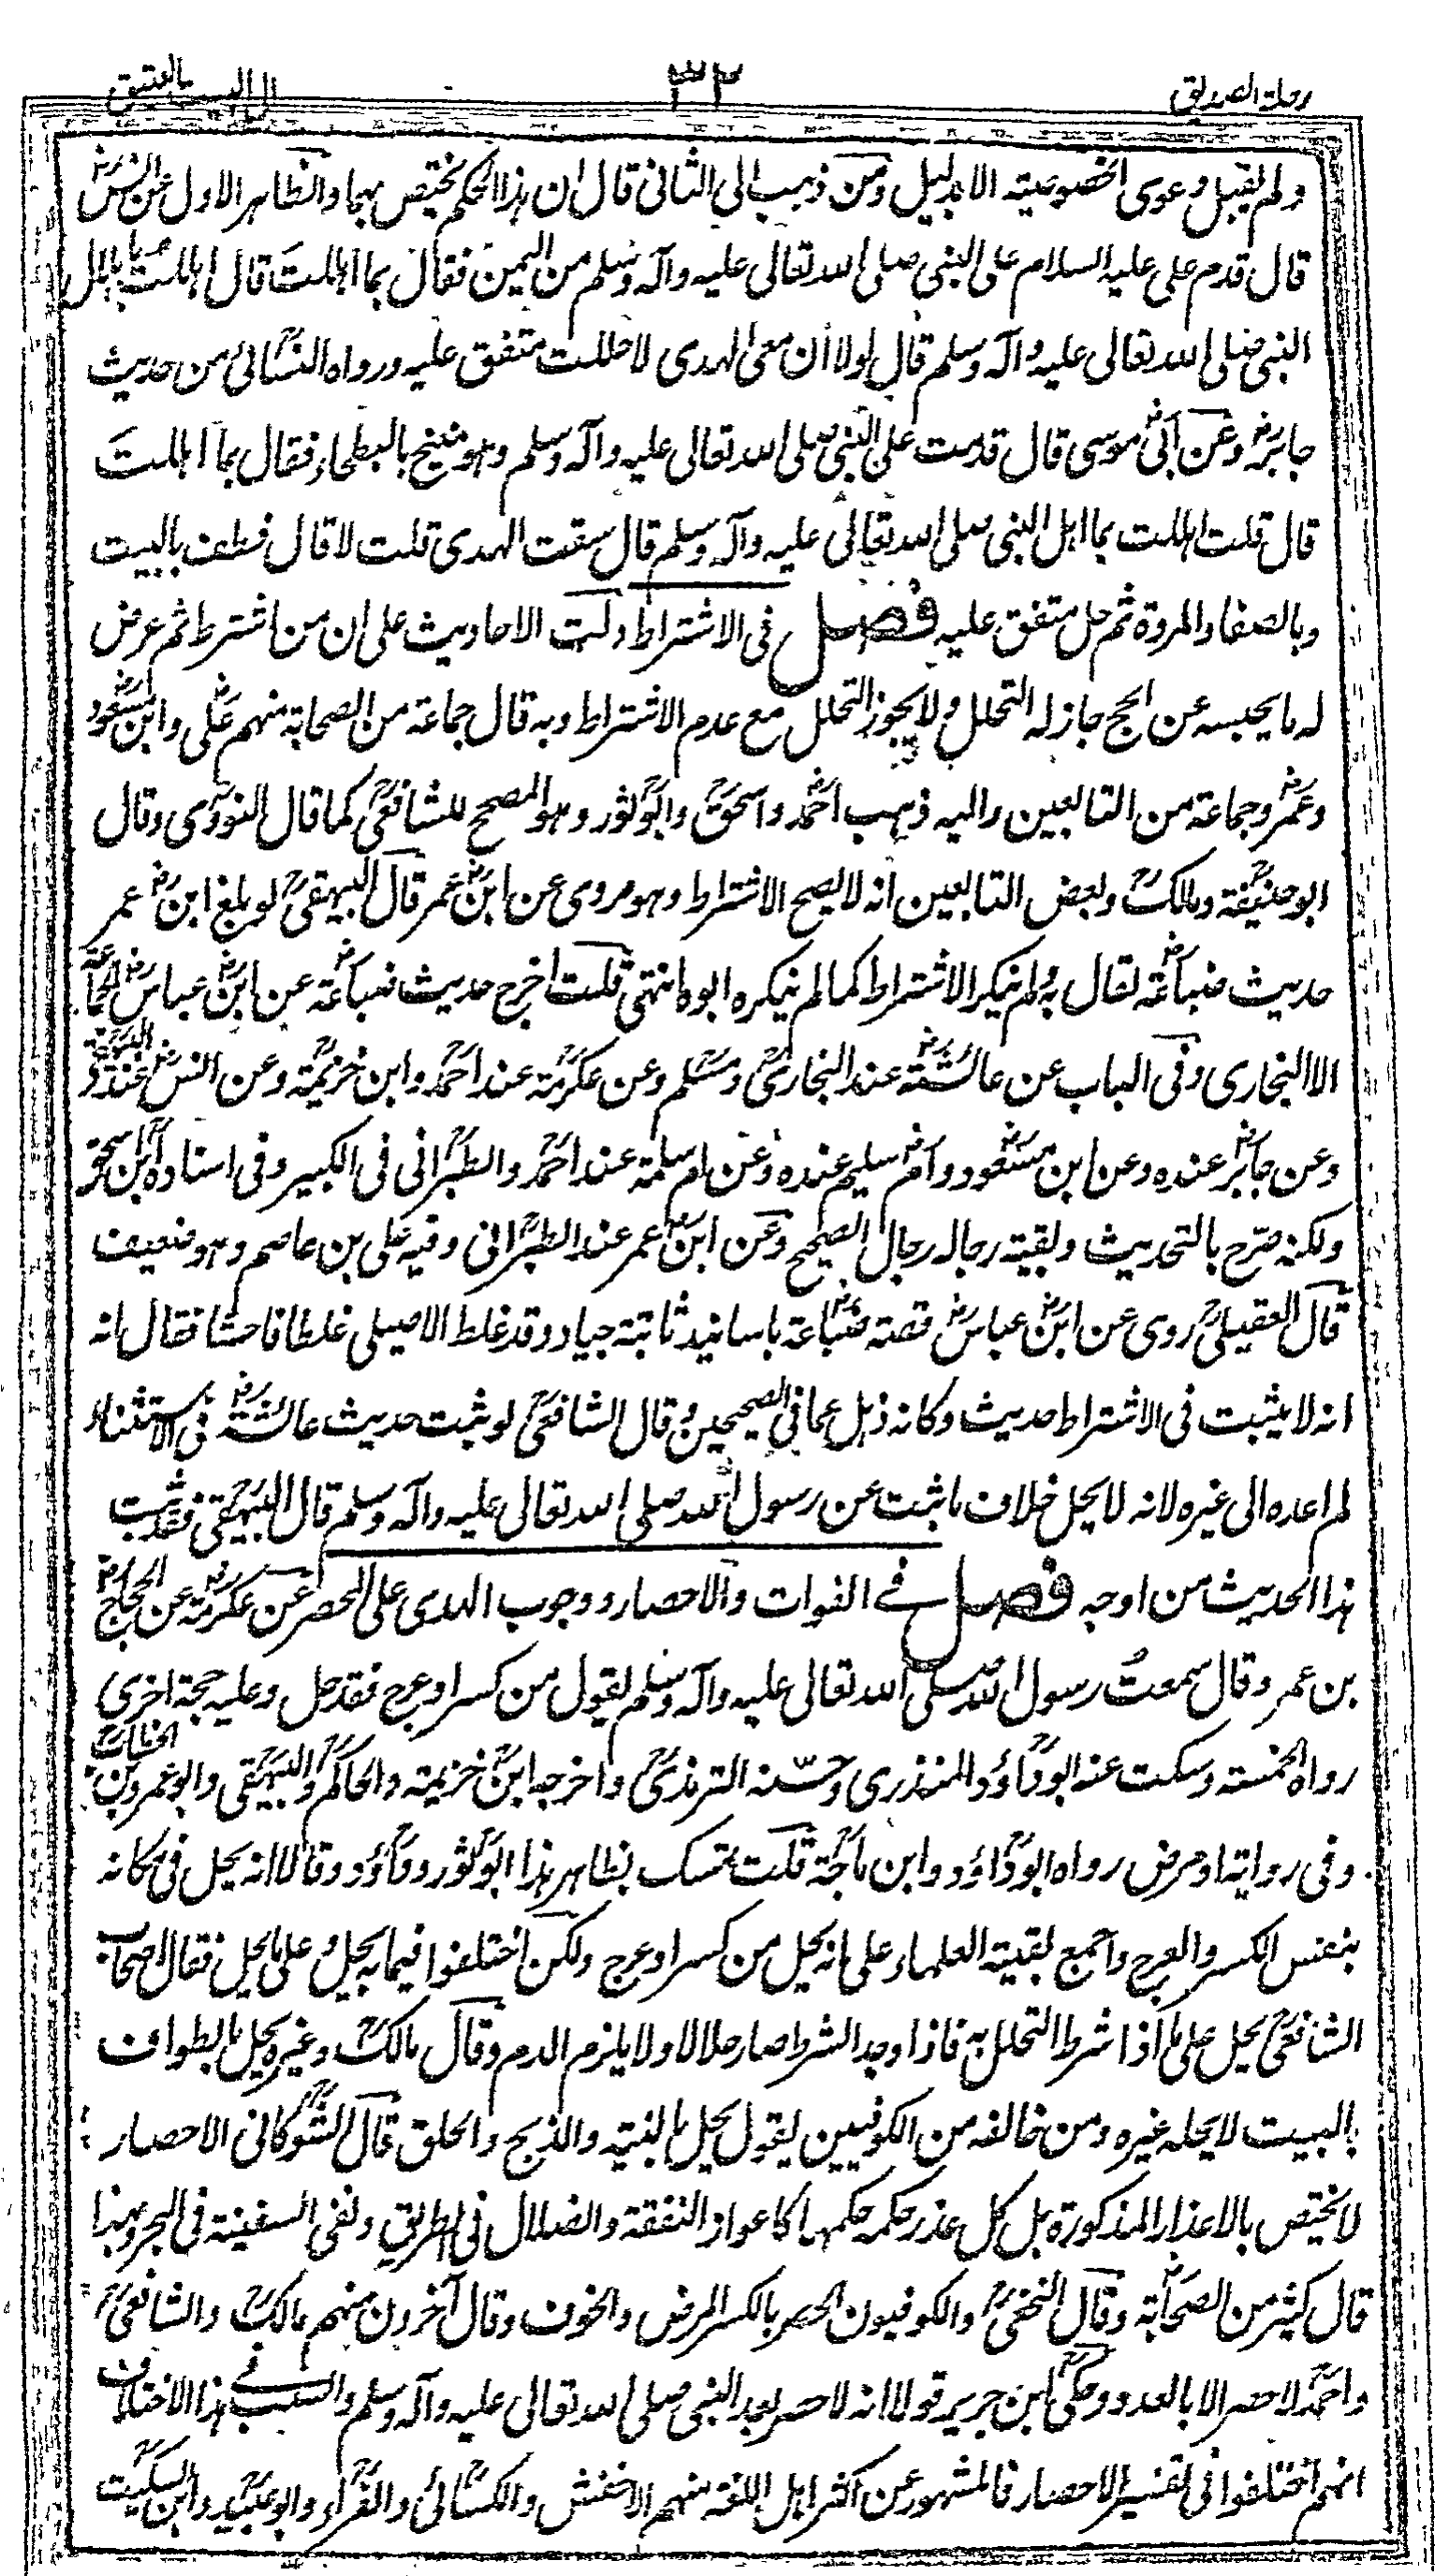 رحلة الصديق
٣٢
الى البيت العتيق
ولم يقبل دعوى الخصوصية الا بدليل ومن ذهب الى الثانى قال ان هذا الحكم يختص بهما والظاهر الاول عن انسؓ
قال قدم على عليه السلام على النبى صلى الله تعالى عليه وآله وسلم من اليمن فقال بما اهللتَ قال اهللتُ باهلال
النبى صلى الله تعالى عليه وآله وسلم قال لولا ان معى الهدى لاحللت متفق عليه ورواه النسائىؒ من حديث
جابرؓ وعن ابىؓ موسى قال قدمت على النبى صلى الله تعالى عليه وآله وسلم وهو منيخ بالبطحاء فقال بما اهللتَ
قال قلت اهللت بما اهل النبى صلى الله تعالى عليه وآله وسلم قال سقت الهدى قلت لا قال فطف بالبيت
وبالصفا والمروة ثم حل متفق عليه فصل فى الاشتراط دلت الاحاديث على ان من اشترط ثم عرض
له ما يحبسه عن الحج جاز له التحلل ولا يجوز التحلل مع عدم الاشتراط وبه قال جماعة من الصحابة منهم علىؓ وابن مسعودؓ
وعمرؓ وجماعة من التابعين واليه ذهب احمدؒ واسحقؒ وابوؒ ثور وهو المصحح للشافعىؒ كما قال النووىؒ وقال
ابو حنيفةؒ ومالكؒ وبعض التابعين انه لا يصح الاشتراط وهو مروى عن ابنؓ عمر قال البيهقىؒ لو بلغ ابنؓ عمر
حديث ضباعةؓ لقال به ولم ينكر الاشتراط كما لم ينكره ابوه انتهى قلت اخرج حديث ضباعةؓ عن ابنؓ عباسؓ الجماعة
الا البخارى وفى الباب عن عائشةؓ عند البخارىؒ ومسلمؒ وعن عكرمةؒ عند احمدؒ وابن خزيمةؒ وعن انسؓ عنده
وعن جابرؓ عنده وعن ابن مسعودؓ وامؓ سليم عنده وعن ام سلمةؓ عند احمدؒ والطبرانىؒ فى الكبير وفى اسناده ابنؒ اسحق
ولكنه صرّح بالتحديث وبقية رجاله رجال الصحيح وعن ابنؓ عمر عند الطبرانىؒ وفيه على بن عاصم وهو ضعيف
قال العقيلىؒ روى عن ابنؓ عباسؓ قصة ضباعةؓ باسانيد ثابتة جياد وقد غلط الاصيلى غلطا فاحشا فقال انه
انه لا يثبت فى الاشتراط حديث وكانه ذهل عما فى الصحيحين وقال الشافعىؒ لو ثبت حديث عائشةؓ فى الاستثناء
لم اعده الى غيره لانه لا يحل خلاف ما ثبت عن رسول الله صلى الله تعالى عليه وآله وسلم قال البيهقىؒ فقد ثبت
هذا الحديث من اوجه فصل فى الفوات والاحصار ووجوب الهدى على المحصر عن عكرمةؓ عن الحجاجؓ
بن عمر وقال سمعتُ رسول الله صلى الله تعالى عليه وآله وسلم يقول من كسر او عرج فقد حل وعليه حجة اخرى
رواه الخمسة وسكت عنه ابو داؤدؒ والمنذرى وحسّنه الترمذىؒ واخرجه ابنؒ خزيمة والحاكمؒ والبيهقىؒ وابو عمرو بن
وفى رواية او مرض رواه ابو داؤدؒ وابن ماجةؒ قلت تمسك بظاهر هذا ابوؒ ثور وداؤدؒ وقالا انه يحل فى مكانه
بنفس الكسر والعرج واجمع بقية العلماء على انه يحل من كسر او عرج ولكن اختلفوا فيما به يحل وعلى ما يحل فقال اصحاب
الشافعىؒ يحل على ما اذا شرط التحلل به فاذا وجد الشرط صار حلالا ولا يلزم الدم وقال مالكؒ وغيره يحل بالطواف
بالبيت لا يحله غيره ومن خالفه من الكوفيين يقول يحل بالنية والذبح والحلق قال الشوكانىؒ الاحصار
لا يختص بالاعذار المذكورة بل كل عذر حكمه حكمها كاعواز النفقة والضلال فى الطريق وبقى السفينة فى البحر وبهذا
قال كثير من الصحابةؓ وقال النخعىؒ والكوفيون الحصر بالكسر والمرض والخوف وقال آخرون منهم مالكؒ والشافعىؒ
واحمدؒ لا حصر الا بالعدو وحكى ابن جريرؒ قولا انه لا حصر بعد النبى صلى الله تعالى عليه وآله وسلم والسبب فى هذا الاختلاف
انهم اختلفوا فى تفسير الاحصار فالمشهور عن اكثر اهل اللغة منهم الاخفش والكسائىؒ والفراءؒ وابو عبيدؒ وابن السكيتؒ